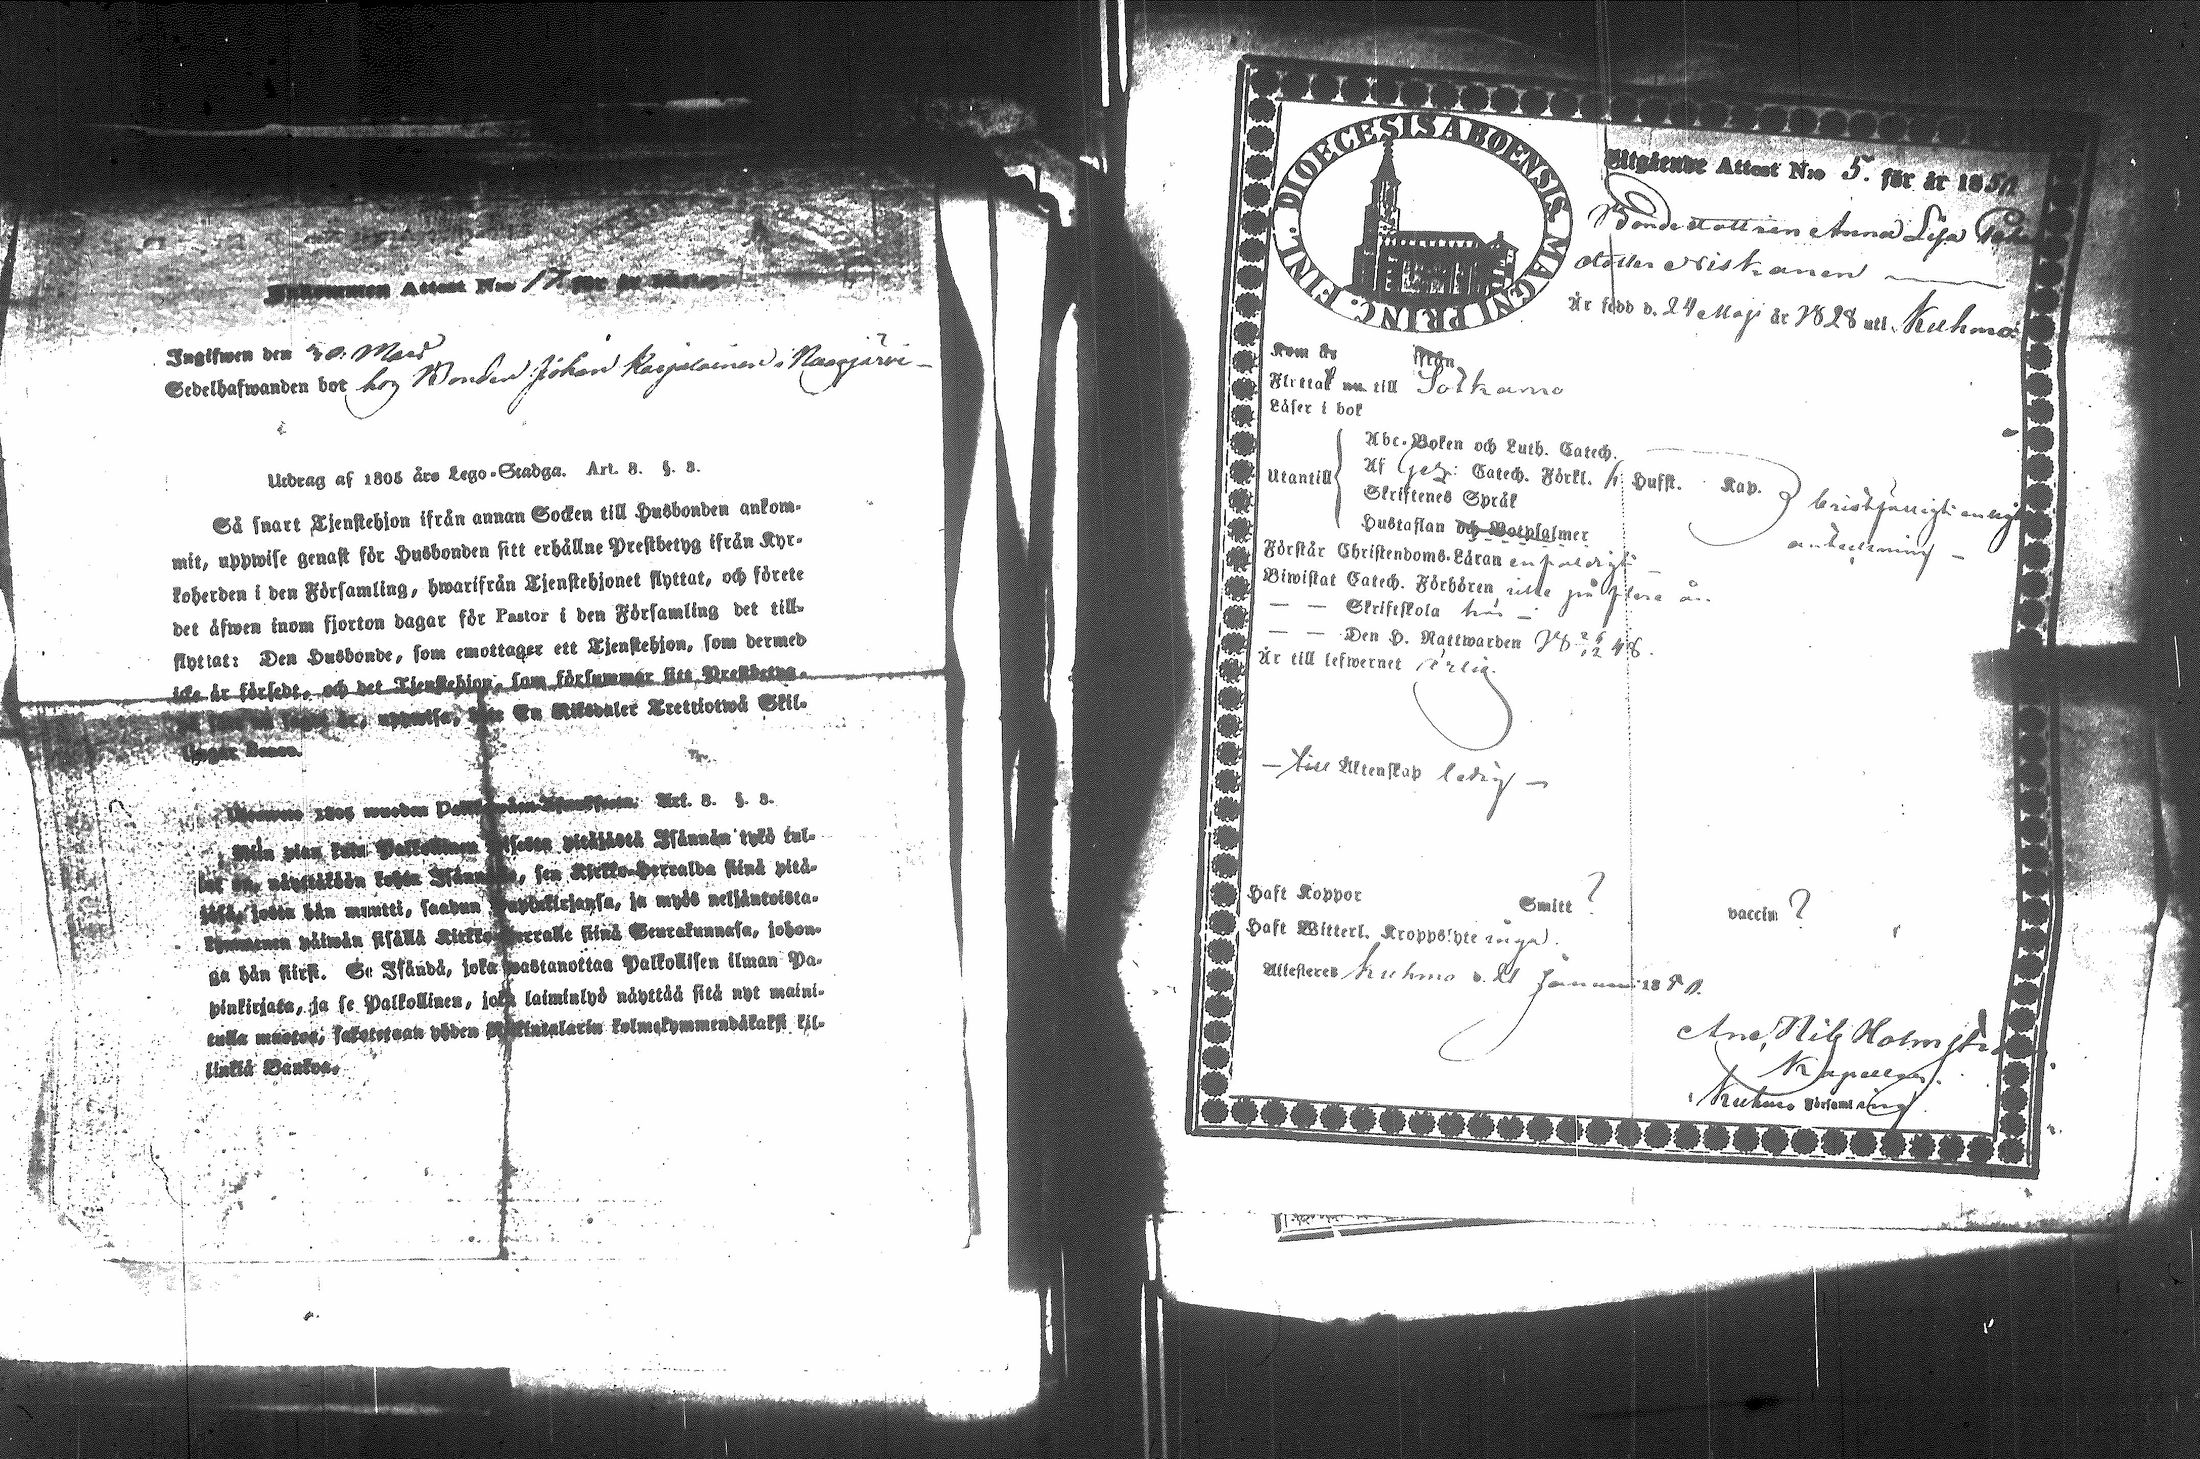 Inkommen Attest N:ro 17 för år
Ingifwen den 30. Mars
Sedelhafwanden bor hoz Bonden Johan Karjalainen i Naapjärvi
Utdrag af 1805 års Lego-Stadga. Art. 8. §. 3.
Så snart Tjenstehjon ifrån annan Socken till Husbonden ankom-
mit, uppwise genast för Husbonden sitt erhållne Prestbetyg ifrån Kyr-
koherden i den Församling, hwarifrån Tjenstehjonet flyttat, och förete
det äfwen inom fjorton dagar för Pastor i den Församling det till-
flyttat: Den Husbonde, som emottager ett Tjenstehjon, som dermed
icke är försedt, och det Tjenstehjon, som försummar sitt Prestbetyg,
uppwisa, böte En Riksdaler Trettiotwå Skil-
lingar Banco.
1805 wuoden Art. 8. §. 3.
Niin pian kuin Palkollinen toisesta pitäjästä Isännän tykö tul-
lut on, näyttäköön kohta Isännälle, sen Kirkko-Herralda siinä pitä-
jäsä, josta hän muutti, saadun Papinkirjansa, ja myös neljäntoista-
kymmenen päiwän sisällä Kirkko-Herralle siinä Seurakunnasa, johon-
ga hän siirsi. Se Isändä, joka wastanottaa Palkollisen ilman Pa-
pinkirjata, ja se Palkollinen, joka laiminlyö näyttää sitä nyt maini-
tulla muotoa, sakotetaan yhden Riikintalarin kolmekymmendäkaksi kil-
linkiä Bankoa.
FINL. DIOECESIS ABOENSIS MAGNI PRINC.
Utgående Attest N:ro 5. för år 1850
Bondedottren Anna Lisa
dotter Niskanen
Är född d. 24 Maji år 1828 uti Kuhmo
Kom år ifrån
Flyttar nu till Sotkamo
Läser i bok
Abc-Boken och Luth. Catech.
Af Catech. Förkl. Hufst. Kap.
Utantill
Skriftenes Språk
Hustaflan och Botpsalmer
anteckning
Förstår Christendoms-Läran enfaldigt
Biwistat Catech. Förhören icke på flera år
— — Skriftskola här
— — Den H. Nattwarden 18 26/12 48.
Är till lefwernet ärlig.
— till Äktenskap ledig —
Haft Koppor Smitt ? vaccin ?
Haft Witterl. Kroppslyte inga.
Attesteras Kuhmo d. 21 Januari 1850.
And. Nils Holmst
Kapellan
i Kuhmo Församling